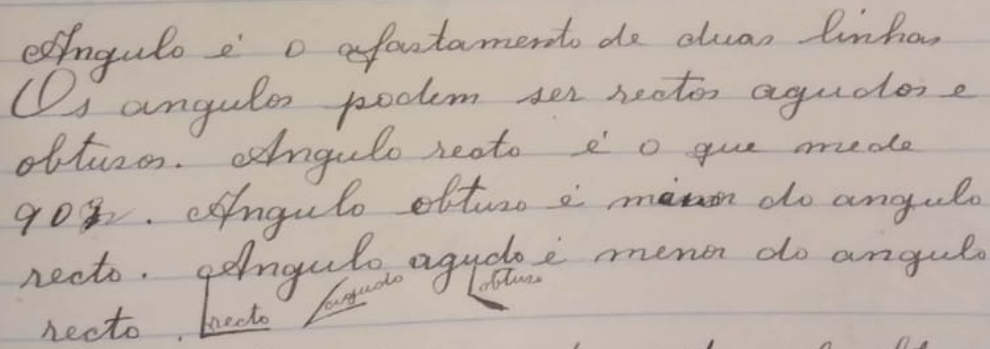 Angulo é o afastamento de duas linhas
Os angulos podem ser rectos agudos e
obtusos. Angulo recto é o que mede
90º. Angulo obtuso é menor do angulo
recto. Angulo agudo é menor do angulo
recto. recto agudo obtuso